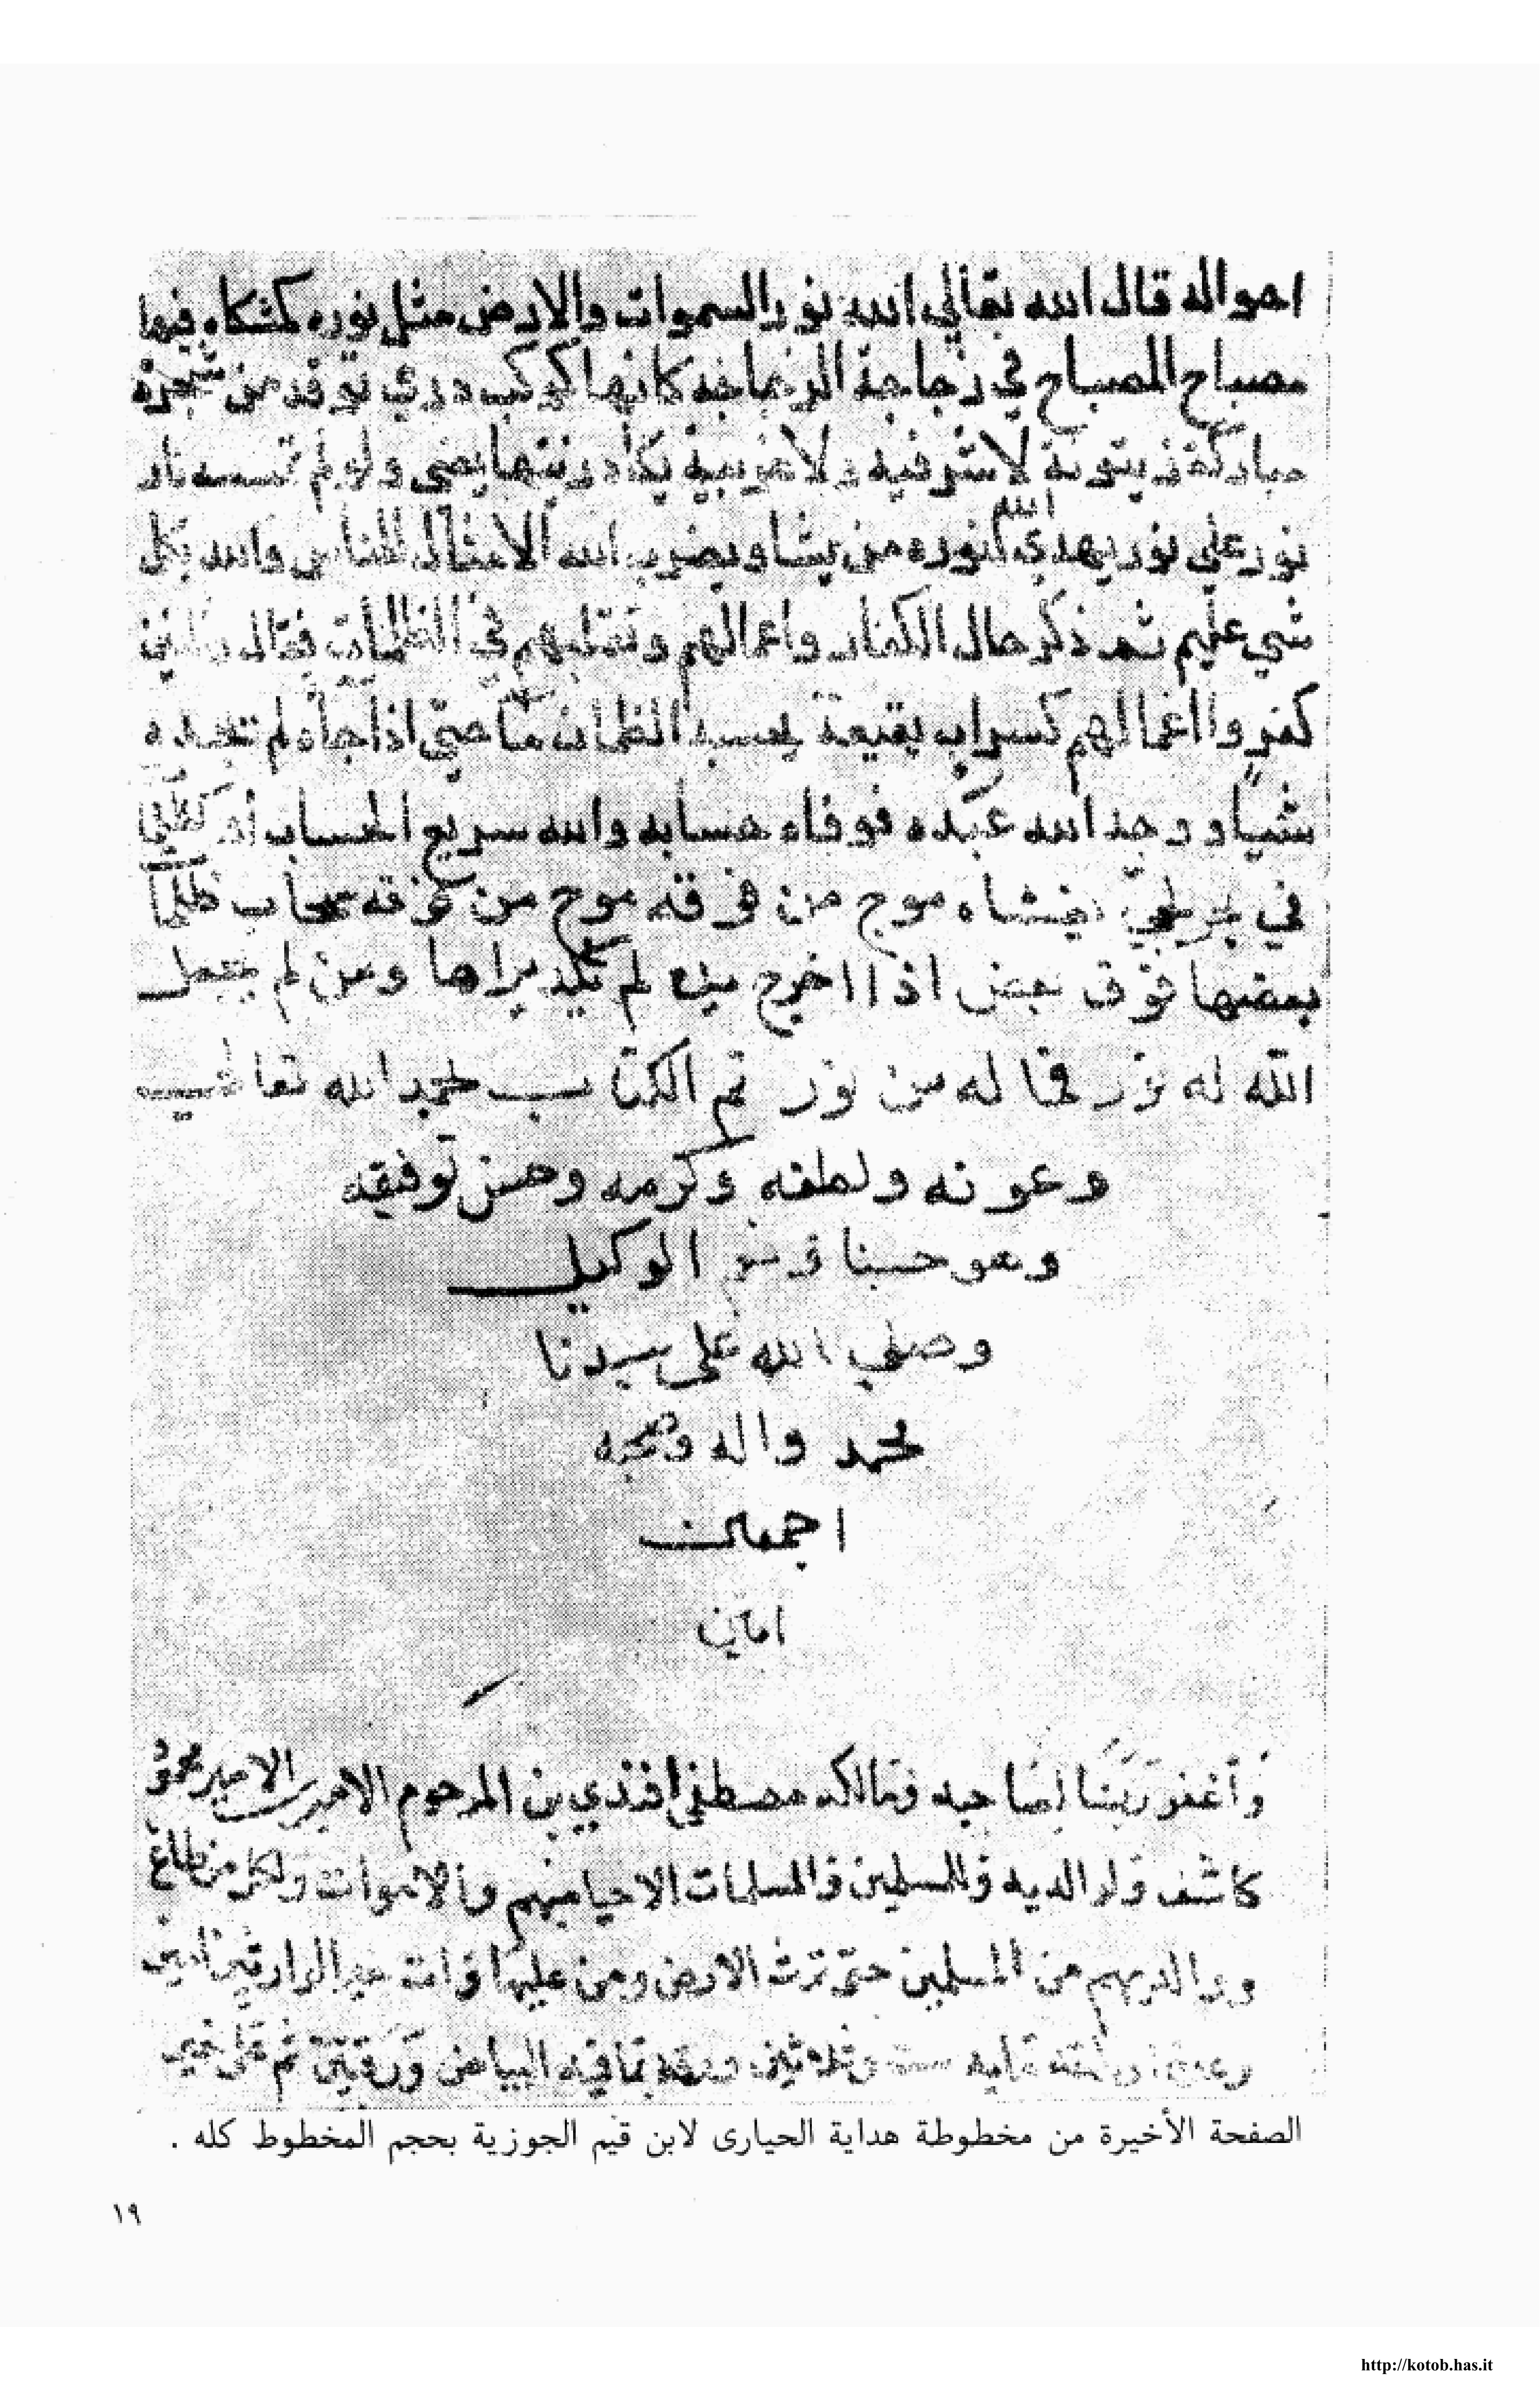 احواله قال الله تعالي الله نور السموات والارض مثل نوره كمشكاه فيها
مصباح المصباح في زجاجة الزجاجه كانها كوكب دري توقد من شجرة
مباركة زيتونة لا شرقيه ولا غربية يكاد زيتها يضي ولو لم تمسسه نار
نور علي نور يهدي الله لنوره من يشا ويضرب الله الامثال للناس والله بكل
شي عليم ثم ذكر حال الكفار واعمالهم وتقلبهم في الظلمات فقال والذين
كفروا اعمالهم كسراب بقيعة يحسبه الظمان مآ حتي اذا جاه لم تجده
شيا ووجد الله عنده فوفاه حسابه والله سريع الحساب او كظلمات
في بحر لجي يغشاه موج من فوقه موج من فوقه سحاب ظلمات
بعضها فوق بعض اذا اخرج يده لم يكد يراها ومن لم يجعل
الله له نور فما له من نور تم الكتاب بحمد الله تعالي
وعونه ولطفه وكرمه وحسن توفيقه
وهو حسبنا ونعم الوكيل
وصلي الله على سيدنا
محمد واله وصحبه
اجمعين
امين
وأغفر ربنا لصاحبه ومالكه مصطفى افندي بن المرحوم الامير الامير محمود
كاشف ولوالديه وللمسلمين والمسلمات الاحيا منهم والاموات ولكل من طالع
ووالديهم من المسلمين حتى ترث الارض ومن عليها وانت خير الوارثين امين
وثلاثين ورقه بما فيه البياض ورقتين تم على خير
الصفحة الأخيرة من مخطوطة هداية الحيارى لابن قيم الجوزية بحجم المخطوط كله .
١٩
http://kotob.has.it